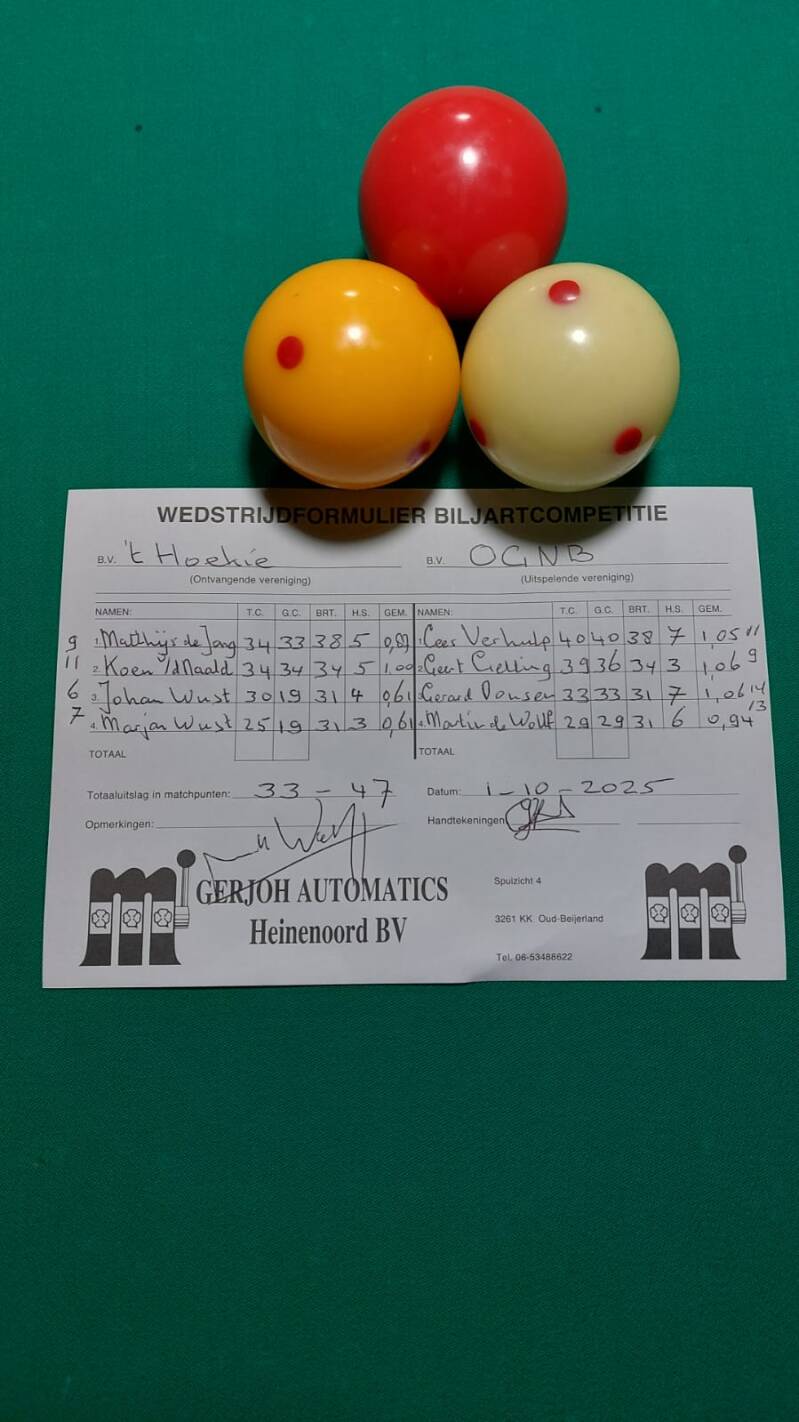 WEDSTRIJDFORMULIER BILJARTCOMPETITIE
B.V. 't Hoekie B.V. OGNB
(Ontvangende vereniging) (Uitspelende vereniging)
NAMEN: T.C. G.C. BRT. H.S. GEM. NAMEN: T.C. G.C. BRT. H.S. GEM.
9 1. Matthijs de Jong 34 33 38 5 0,89 1. Cees Verhulp 40 40 38 7 1,05 11
11 2. Koen v/d Naald 34 34 34 5 1,00 2. Geert 39 36 34 3 1,06 9
6 3. Johan Wust 30 19 31 4 0,61 Gerard 33 33 31 7 1,06 14
7 4. Marjan Wust 25 19 31 3 0,61 4. Martin de Wolff 29 29 31 6 0,94 13
TOTAAL TOTAAL
Totaaluitslag in matchpunten: 33 - 47 Datum: 1-10-2025
Opmerkingen: Handtekeningen
GERJOH AUTOMATICS
Heinenoord BV
Spuizicht 4
3261 KK Oud-Beijerland
Tel. 06-53488622